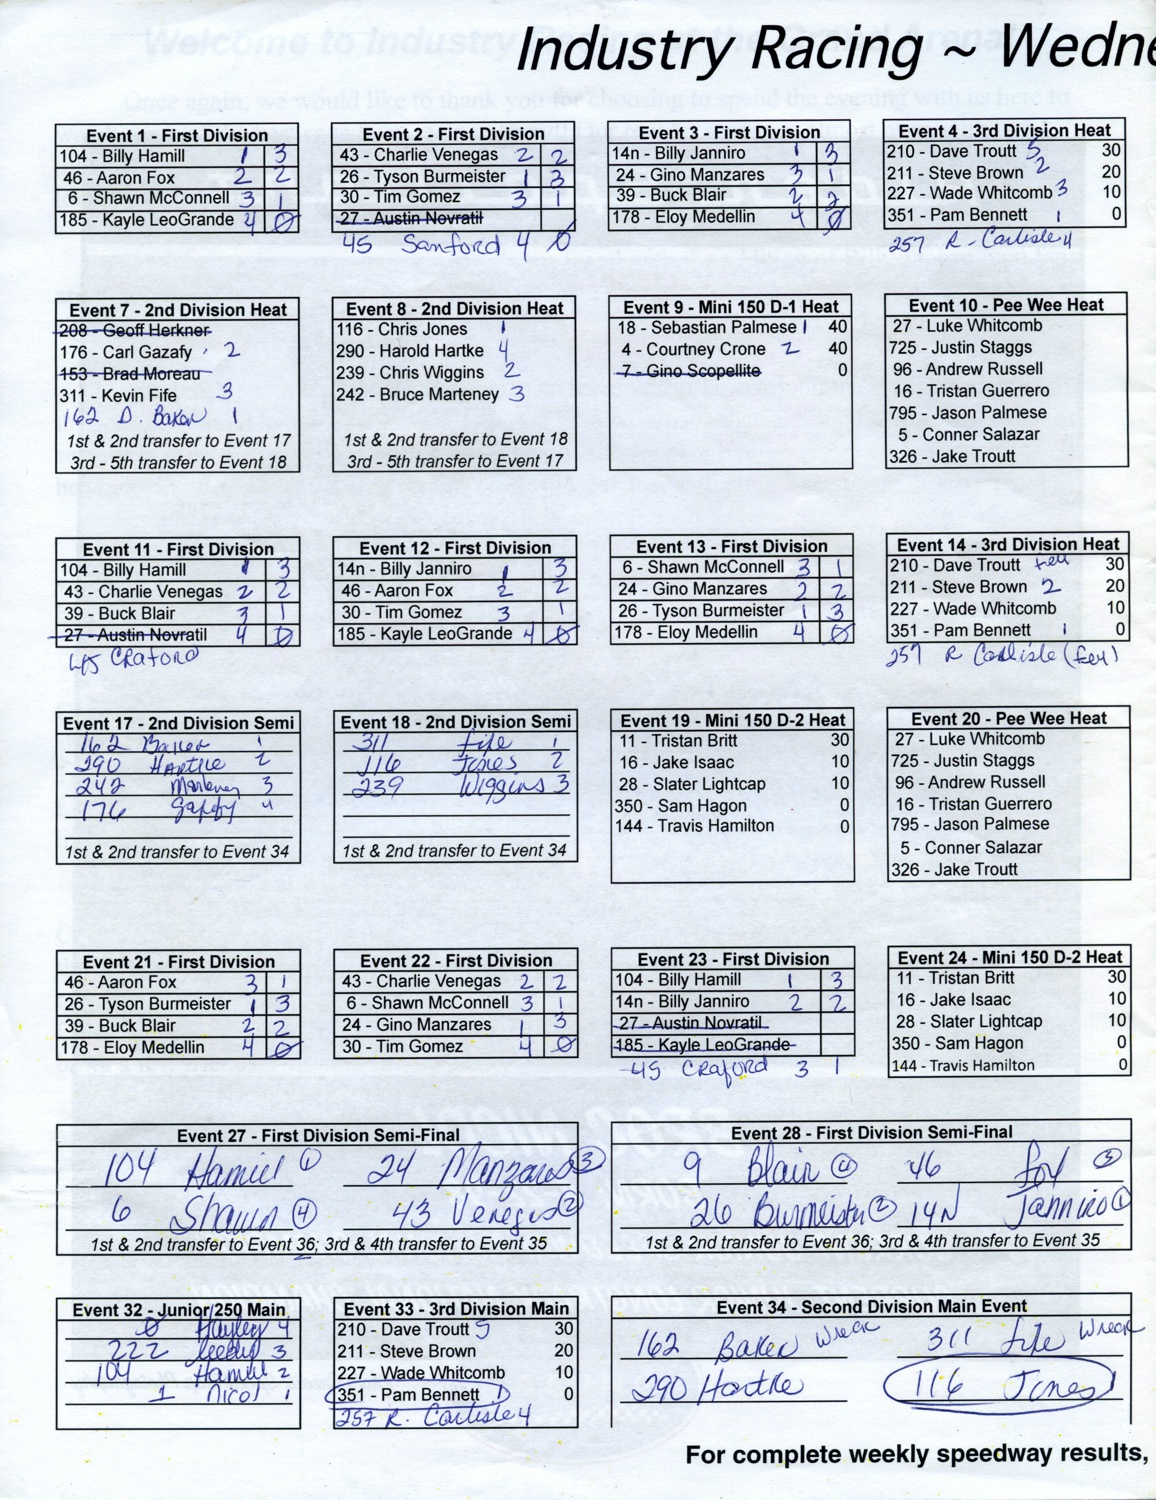 Industry Racing ~ Wedne
Event 1 - First Division
104 - Billy Hamill 1 3
46 - Aaron Fox 2 2
6 - Shawn McConnell 3 1
185 - Kayle LeoGrande 4 0
Event 2 - First Division
43 - Charlie Venegas 2 2
26 - Tyson Burmeister 1 3
30 - Tim Gomez 3 1
27 - Austin Novratil
45 Sanford 4 0
Event 3 - First Division
14n - Billy Janniro 1 3
24 - Gino Manzares 3 1
39 - Buck Blair 2 2
178 - Eloy Medellin 4 0
Event 4 - 3rd Division Heat
210 - Dave Troutt 5 30
211 - Steve Brown 2 20
227 - Wade Whitcomb 3 10
351 - Pam Bennett 1 0
257 R - Carlisle 4
Event 7 - 2nd Division Heat
208 - Geoff Herkner
176 - Carl Gazafy 2
153 - Brad Moreau
311 - Kevin Fife 3
162 D. Baker 1
1st & 2nd transfer to Event 17
3rd - 5th transfer to Event 18
Event 8 - 2nd Division Heat
116 - Chris Jones 1
290 - Harold Hartke 4
239 - Chris Wiggins 2
242 - Bruce Marteney 3
1st & 2nd transfer to Event 18
3rd - 5th transfer to Event 17
Event 9 - Mini 150 D-1 Heat
18 - Sebastian Palmese 1 40
4 - Courtney Crone 2 40
7 - Gino Scopellite 0
Event 10 - Pee Wee Heat
27 - Luke Whitcomb
725 - Justin Staggs
96 - Andrew Russell
16 - Tristan Guerrero
795 - Jason Palmese
5 - Conner Salazar
326 - Jake Troutt
Event 11 - First Division
104 - Billy Hamill 1 3
43 - Charlie Venegas 2 2
39 - Buck Blair 3 1
27 - Austin Novratil 4 0
45 Craford
Event 12 - First Division
14n - Billy Janniro 1 3
46 - Aaron Fox 2 2
30 - Tim Gomez 3 1
185 - Kayle LeoGrande 4 0
Event 13 - First Division
6 - Shawn McConnell 3 1
24 - Gino Manzares 2 2
26 - Tyson Burmeister 1 3
178 - Eloy Medellin 4 0
Event 14 - 3rd Division Heat
210 - Dave Troutt fell 30
211 - Steve Brown 2 20
227 - Wade Whitcomb 10
351 - Pam Bennett 1 0
257 R Carlisle (fell)
Event 17 - 2nd Division Semi
162 Baker 1
290 Hartke 2
242 Marteney 3
176 Gazafy 4
1st & 2nd transfer to Event 34
Event 18 - 2nd Division Semi
311 Fife 1
116 Jones 2
239 Wiggins 3
1st & 2nd transfer to Event 34
Event 19 - Mini 150 D-2 Heat
11 - Tristan Britt 30
16 - Jake Isaac 10
28 - Slater Lightcap 10
350 - Sam Hagon 0
144 - Travis Hamilton 0
Event 20 - Pee Wee Heat
27 - Luke Whitcomb
725 - Justin Staggs
96 - Andrew Russell
16 - Tristan Guerrero
795 - Jason Palmese
5 - Conner Salazar
326 - Jake Troutt
Event 21 - First Division
46 - Aaron Fox 3 1
26 - Tyson Burmeister 1 3
39 - Buck Blair 2 2
178 - Eloy Medellin 4 0
Event 22 - First Division
43 - Charlie Venegas 2 2
6 - Shawn McConnell 3 1
24 - Gino Manzares 1 3
30 - Tim Gomez 4 0
Event 23 - First Division
104 - Billy Hamill 1 3
14n - Billy Janniro 2 2
27 - Austin Novratil
185 - Kayle LeoGrande
45 Craford 3 1
Event 24 - Mini 150 D-2 Heat
11 - Tristan Britt 30
16 - Jake Isaac 10
28 - Slater Lightcap 10
350 - Sam Hagon 0
144 - Travis Hamilton 0
Event 27 - First Division Semi-Final
104 Hamill 1 24 Manzares 3
6 Shawn 4 43 Venegas 2
1st & 2nd transfer to Event 36; 3rd & 4th transfer to Event 35
Event 28 - First Division Semi-Final
9 Blair 4 46 Fox 3
26 Burmeister 2 14N Janniro 1
1st & 2nd transfer to Event 36; 3rd & 4th transfer to Event 35
Event 32 - Junior/250 Main
0 Hayley 4
222 3
104 Hamill 2
1 Nicol 1
Event 33 - 3rd Division Main
210 - Dave Troutt 5 30
211 - Steve Brown 20
227 - Wade Whitcomb 10
351 - Pam Bennett 1 0
257 R. Carlisle 4
Event 34 - Second Division Main Event
162 Baker Wreck 311 Fife Wreck
290 Hartke 116 Jones 1
For complete weekly speedway results,